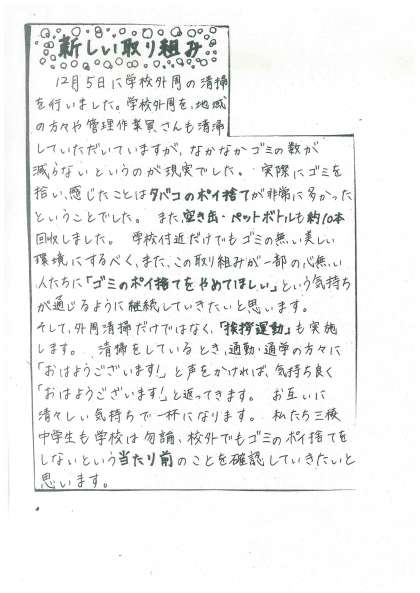 新しい取り組み
12月5日に学校外周の清掃
を行いました。学校外周を、地域
の方々や管理作業員さんも清掃
していただいていますが、なかなかゴミの数が
減らないというのが現実でした。 実際にゴミを
拾い、感じたことはタバコのポイ捨てが非常に多かった
ということでした。また、空き缶・ペットボトルも約10本
回収しました。 学校付近だけでもゴミの無い美しい
環境にするべく、また、この取り組みが一部の心無い
人たちに「ゴミのポイ捨てをやめてほしい」という気持ち
が通じるように継続していきたいと思います。
そして、外周清掃だけではなく、「挨拶運動」も実施
します。 清掃をしているとき、通勤・通学の方々に
「おはようございます!」と声をかければ、気持ち良く
「おはようございます!」と返ってきます。 お互いに
清々しい気持ちで一杯になります。 私たち三稜
中学生も学校は勿論、校外でもゴミのポイ捨てを
しないという当たり前のことを確認していきたいと
思います。